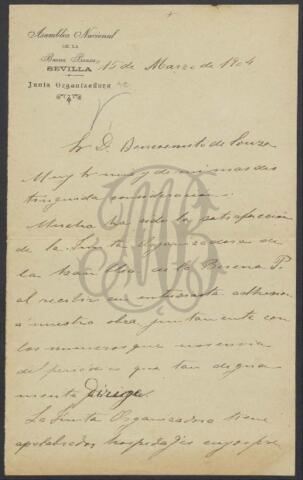 Asamblea Nacional
DE LA
Buena Prensa
SEVILLA
Junta Organizadora
15 de Marzo de 1904
Sr D. Benvenuto de Souza
Muy Sr mio y de mi mas dis
tinguida consideración:
Mucha ha sido la satisfacción
de la Junta Organizadora de
la Asamblea de la Buena P.
al recibir su entusiasta adhesion
a nuestra obra juntamente con
los numeros que nos envia
del periódico que tan digna
mente dirige.
La Junta Organizadora tiene
apalabrados hospedajes cuyos pre